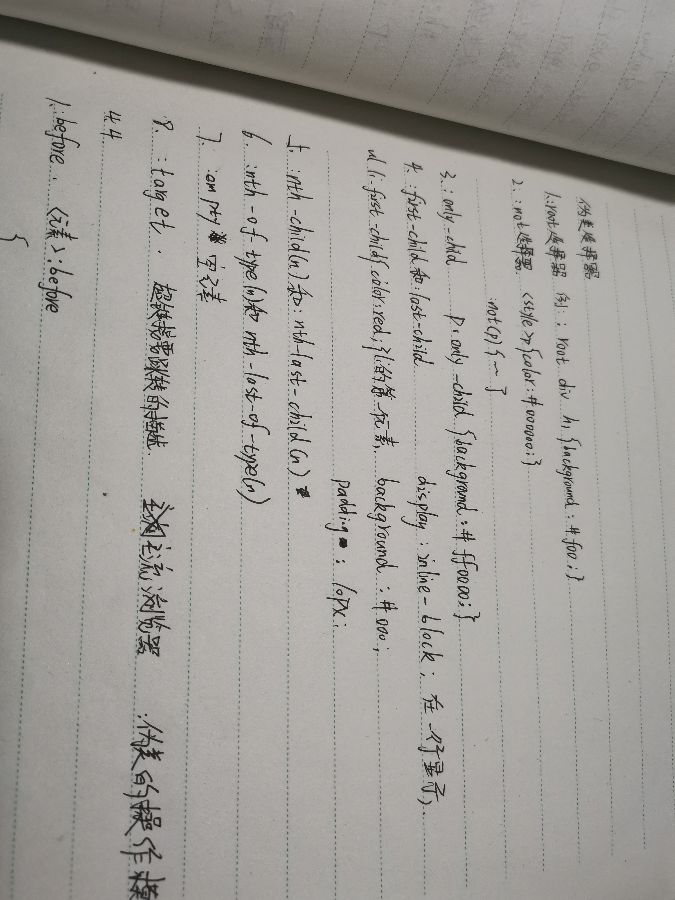 伪类选择器
1. :root选择器 例: :root div h1 {background: #f00;}
2. :not选择器 <style>p{color:#000000;}
:not(p){...}
3. :only-child p:only-child {background:#ff0000;}
4. :first-child和:last-child display:inline-block; 在一个行显示,
ul li:first-child{color:red;}li的第一个元素. background:#000;
padding: 10px;
5. :nth-child(n)和:nth-last-child(n)
6. :nth-of-type(n)和 nth-last-of-type(n)
7. :empty 空元素
8. :target. 超链接 的 主流浏览器 伪类的操作
4.4
1. before. <元素>:before
{